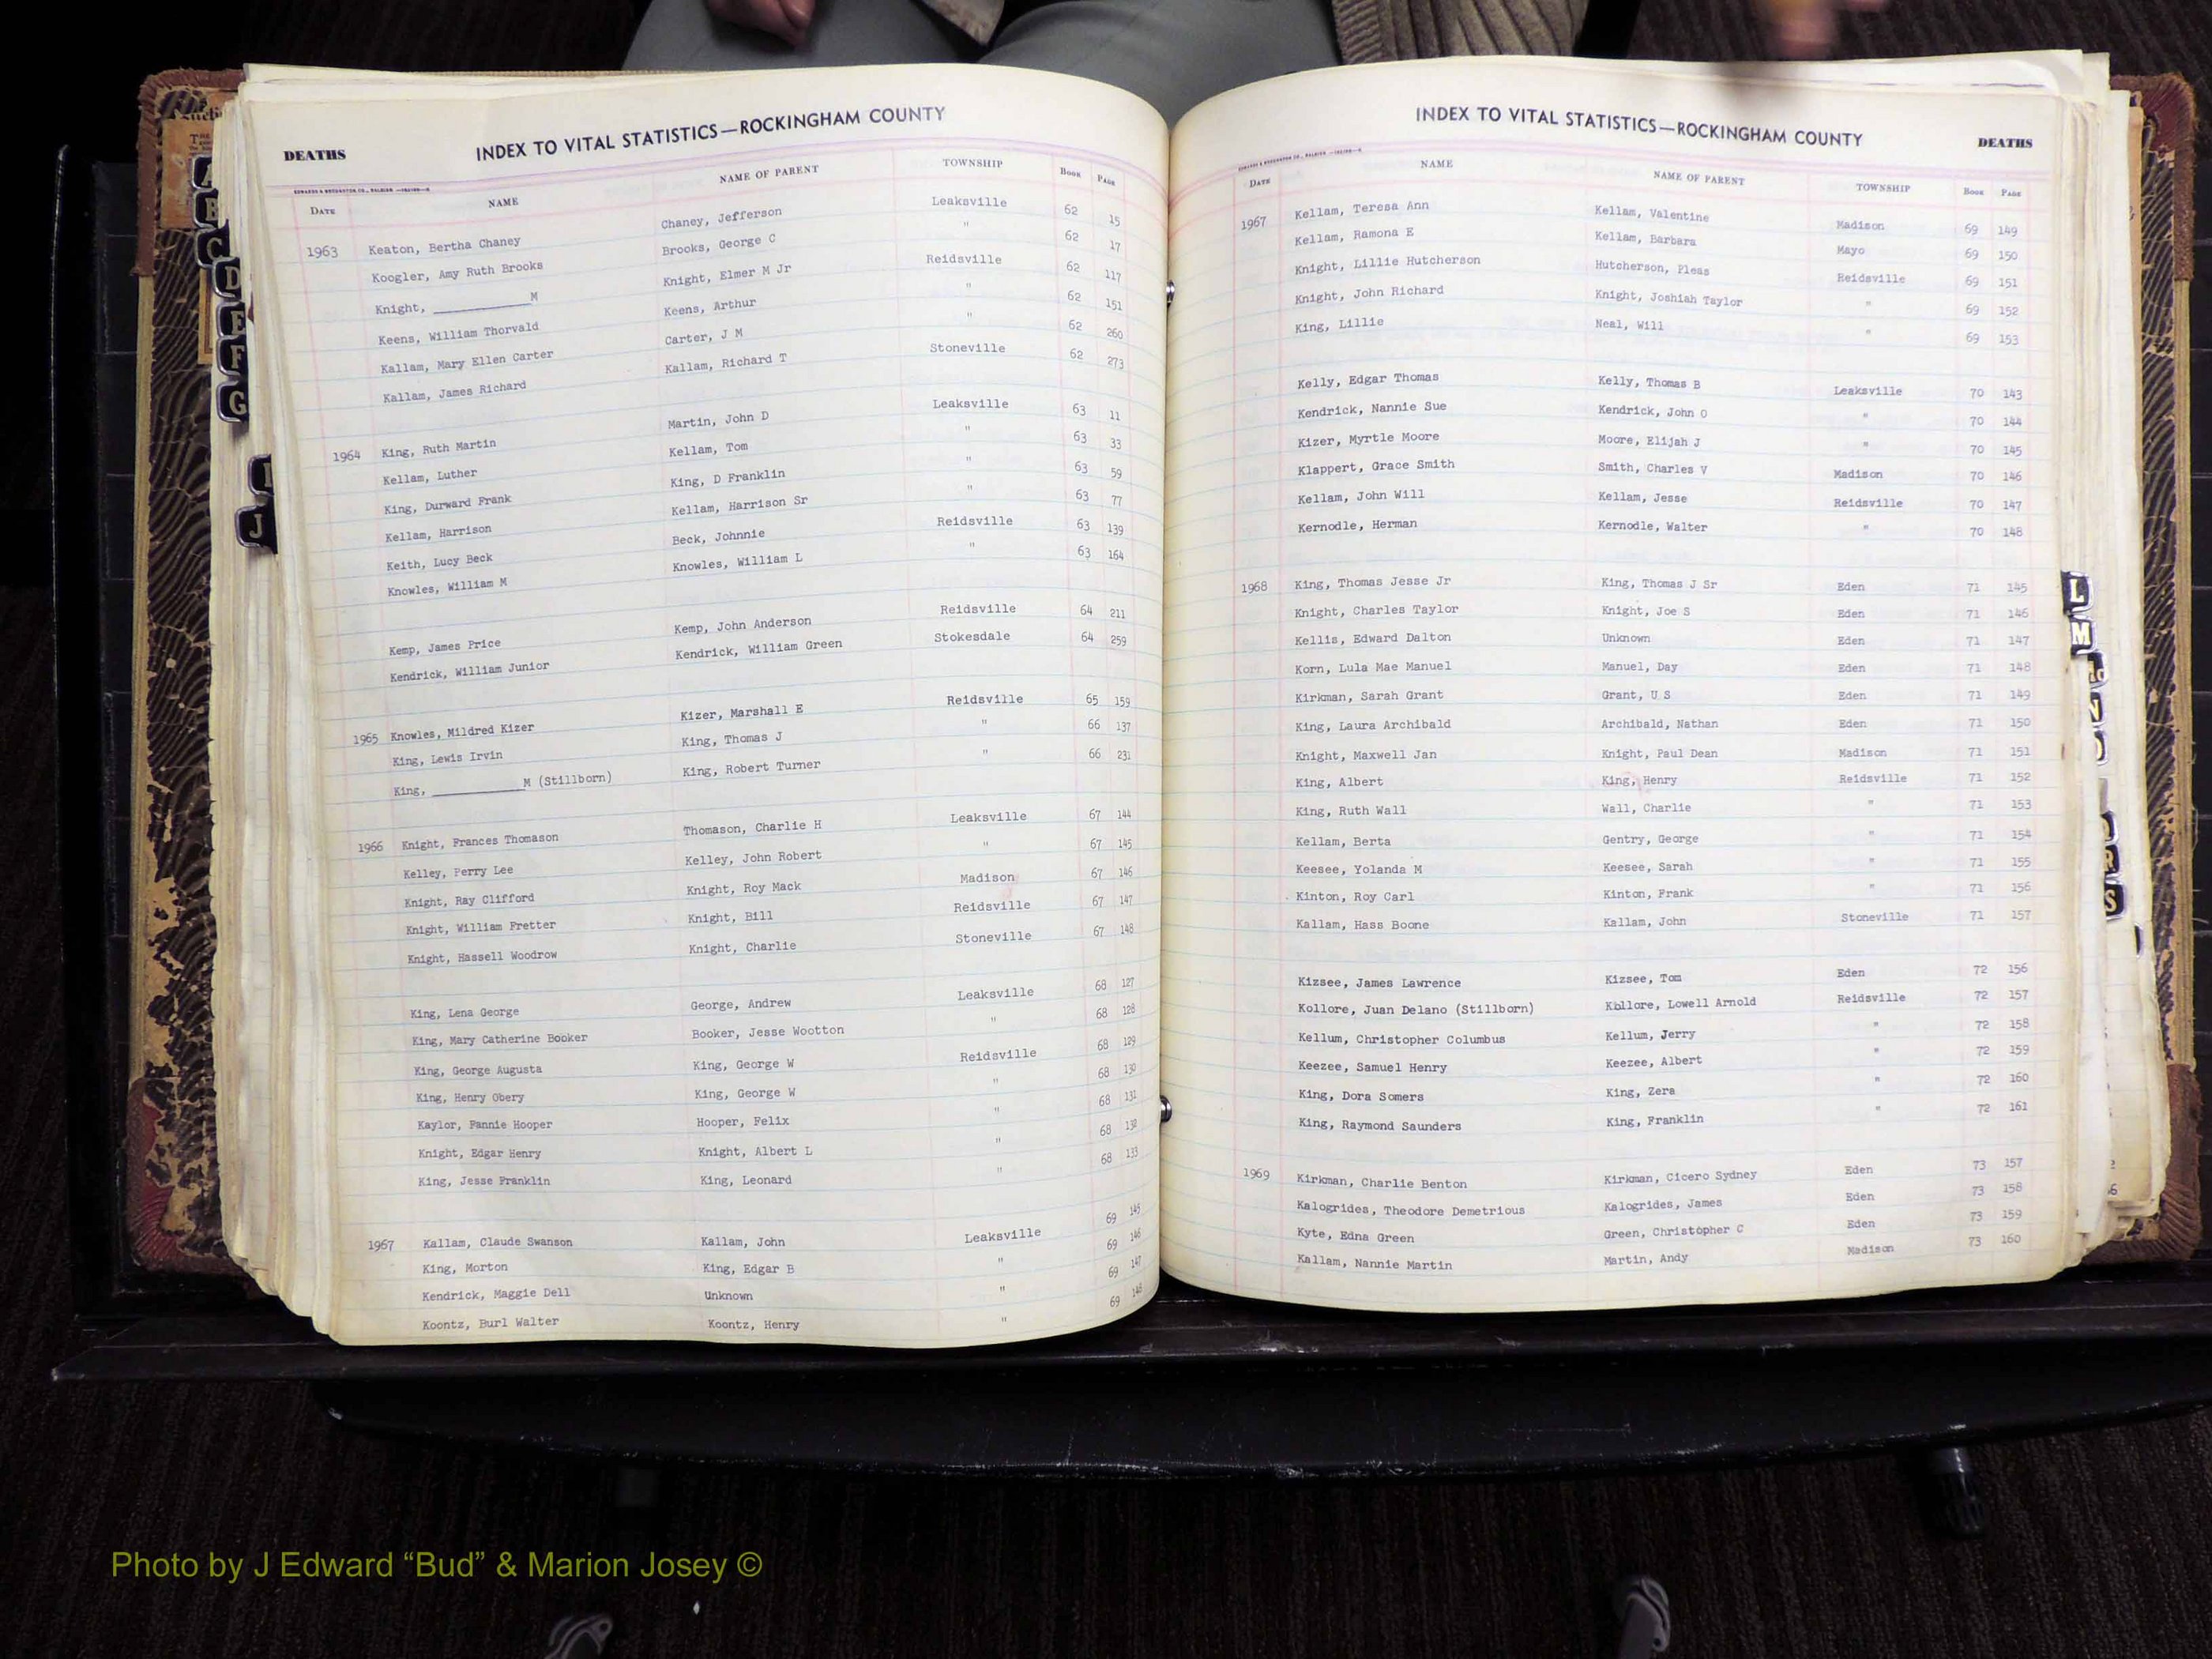 DEATHS
INDEX TO VITAL STATISTICS—ROCKINGHAM COUNTY
DATE NAME NAME OF PARENT TOWNSHIP BOOK PAGE
1963 Keaton, Bertha Chaney Chaney, Jefferson Leaksville 62 15
Koogler, Amy Ruth Brooks Brooks, George C " 62 17
Knight, __________M Knight, Elmer M Jr Reidsville 62 117
Keens, William Thorvald Keens, Arthur " 62 151
Kallam, Mary Ellen Carter Carter, J M " 62 260
Kallam, James Richard Kallam, Richard T Stoneville 62 273
1964 King, Ruth Martin Martin, John D Leaksville 63 11
Kellam, Luther Kellam, Tom " 63 33
King, Durward Frank King, D Franklin " 63 59
Kellam, Harrison Kellam, Harrison Sr " 63 77
Keith, Lucy Beck Beck, Johnnie Reidsville 63 139
Knowles, William M Knowles, William L " 63 164
Kemp, James Price Kemp, John Anderson Reidsville 64 211
Kendrick, William Junior Kendrick, William Green Stokesdale 64 259
1965 Knowles, Mildred Kizer Kizer, Marshall E Reidsville 65 159
King, Lewis Irvin King, Thomas J " 66 137
King, __________M (Stillborn) King, Robert Turner " 66 231
1966 Knight, Frances Thomason Thomason, Charlie H Leaksville 67 144
Kelley, Perry Lee Kelley, John Robert " 67 145
Knight, Ray Clifford Knight, Roy Mack Madison 67 146
Knight, William Fretter Knight, Bill Reidsville 67 147
Knight, Hassell Woodrow Knight, Charlie Stoneville 67 148
King, Lena George George, Andrew Leaksville 68 127
King, Mary Catherine Booker Booker, Jesse Wootton " 68 128
King, George Augusta King, George W Reidsville 68 129
King, Henry Obery King, George W " 68 130
Kaylor, Fannie Hooper Hooper, Felix " 68 131
Knight, Edgar Henry Knight, Albert L " 68 132
King, Jesse Franklin King, Leonard " 68 133
1967 Kallam, Claude Swanson Kallam, John Leaksville 69 145
King, Morton King, Edgar B " 69 146
Kendrick, Maggie Dell Unknown " 69 147
Koontz, Burl Walter Koontz, Henry " 69 148
INDEX TO VITAL STATISTICS—ROCKINGHAM COUNTY
DEATHS
DATE NAME NAME OF PARENT TOWNSHIP BOOK PAGE
1967 Kellam, Teresa Ann Kellam, Valentine Madison 69 149
Kellam, Ramona E Kellam, Barbara Mayo 69 150
Knight, Lillie Hutcherson Hutcherson, Pleas Reidsville 69 151
Knight, John Richard Knight, Joshiah Taylor " 69 152
King, Lillie Neal, Will " 69 153
Kelly, Edgar Thomas Kelly, Thomas B Leaksville 70 143
Kendrick, Nannie Sue Kendrick, John O " 70 144
Kizer, Myrtle Moore Moore, Elijah J " 70 145
Klappert, Grace Smith Smith, Charles V Madison 70 146
Kellam, John Will Kellam, Jesse Reidsville 70 147
Kernodle, Herman Kernodle, Walter " 70 148
1968 King, Thomas Jesse Jr King, Thomas J Sr Eden 71 145
Knight, Charles Taylor Knight, Joe S Eden 71 146
Kellis, Edward Dalton Unknown Eden 71 147
Korn, Lula Mae Manuel Manuel, Day Eden 71 148
Kirkman, Sarah Grant Grant, U S Eden 71 149
King, Laura Archibald Archibald, Nathan Eden 71 150
Knight, Maxwell Jan Knight, Paul Dean Madison 71 151
King, Albert King, Henry Reidsville 71 152
King, Ruth Wall Wall, Charlie " 71 153
Kellam, Berta Gentry, George " 71 154
Keesee, Yolanda M Keesee, Sarah " 71 155
Kinton, Roy Carl Kinton, Frank " 71 156
Kallam, Hass Boone Kallam, John Stoneville 71 157
Kizsee, James Lawrence Kizsee, Tom Eden 72 156
Kollore, Juan Delano (Stillborn) Kollore, Lowell Arnold Reidsville 72 157
Kellum, Christopher Columbus Kellum, Jerry " 72 158
Keezee, Samuel Henry Keezee, Albert " 72 159
King, Dora Somers King, Zera " 72 160
King, Raymond Saunders King, Franklin " 72 161
1969 Kirkman, Charlie Benton Kirkman, Cicero Sydney Eden 73 157
Kalogrides, Theodore Demetrious Kalogrides, James Eden 73 158
Kyte, Edna Green Green, Christopher C Eden 73 159
Kallam, Nannie Martin Martin, Andy Madison 73 160
A
B
C
D
E
F
G
J
L
M
N
R
S
Photo by J Edward “Bud” & Marion Josey ©